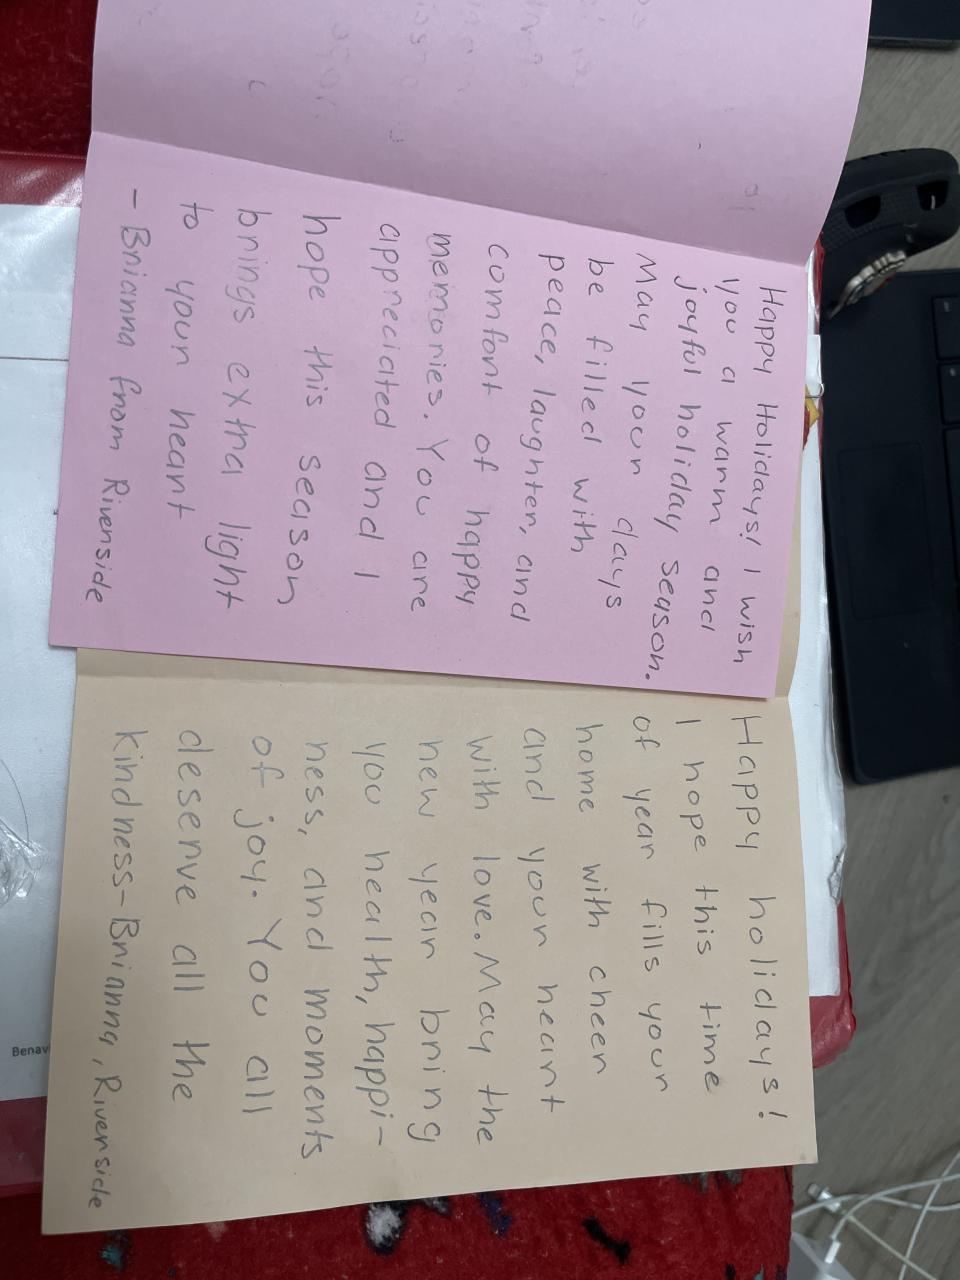 Happy Holidays! I wish
you a warm and
joyful holiday season.
May your days
be filled with
peace, laughter, and
comfort of happy
memories. You are
appreciated and I
hope this season
brings extra light
to your heart
- Brianna from Riverside
Happy holidays!
I hope this time
of year fills your
home with cheer
and your heart
with love. May the
new year bring
you health, happi-
ness, and moments
of joy. You all
deserve all the
kindness - Brianna, Riverside
Benav